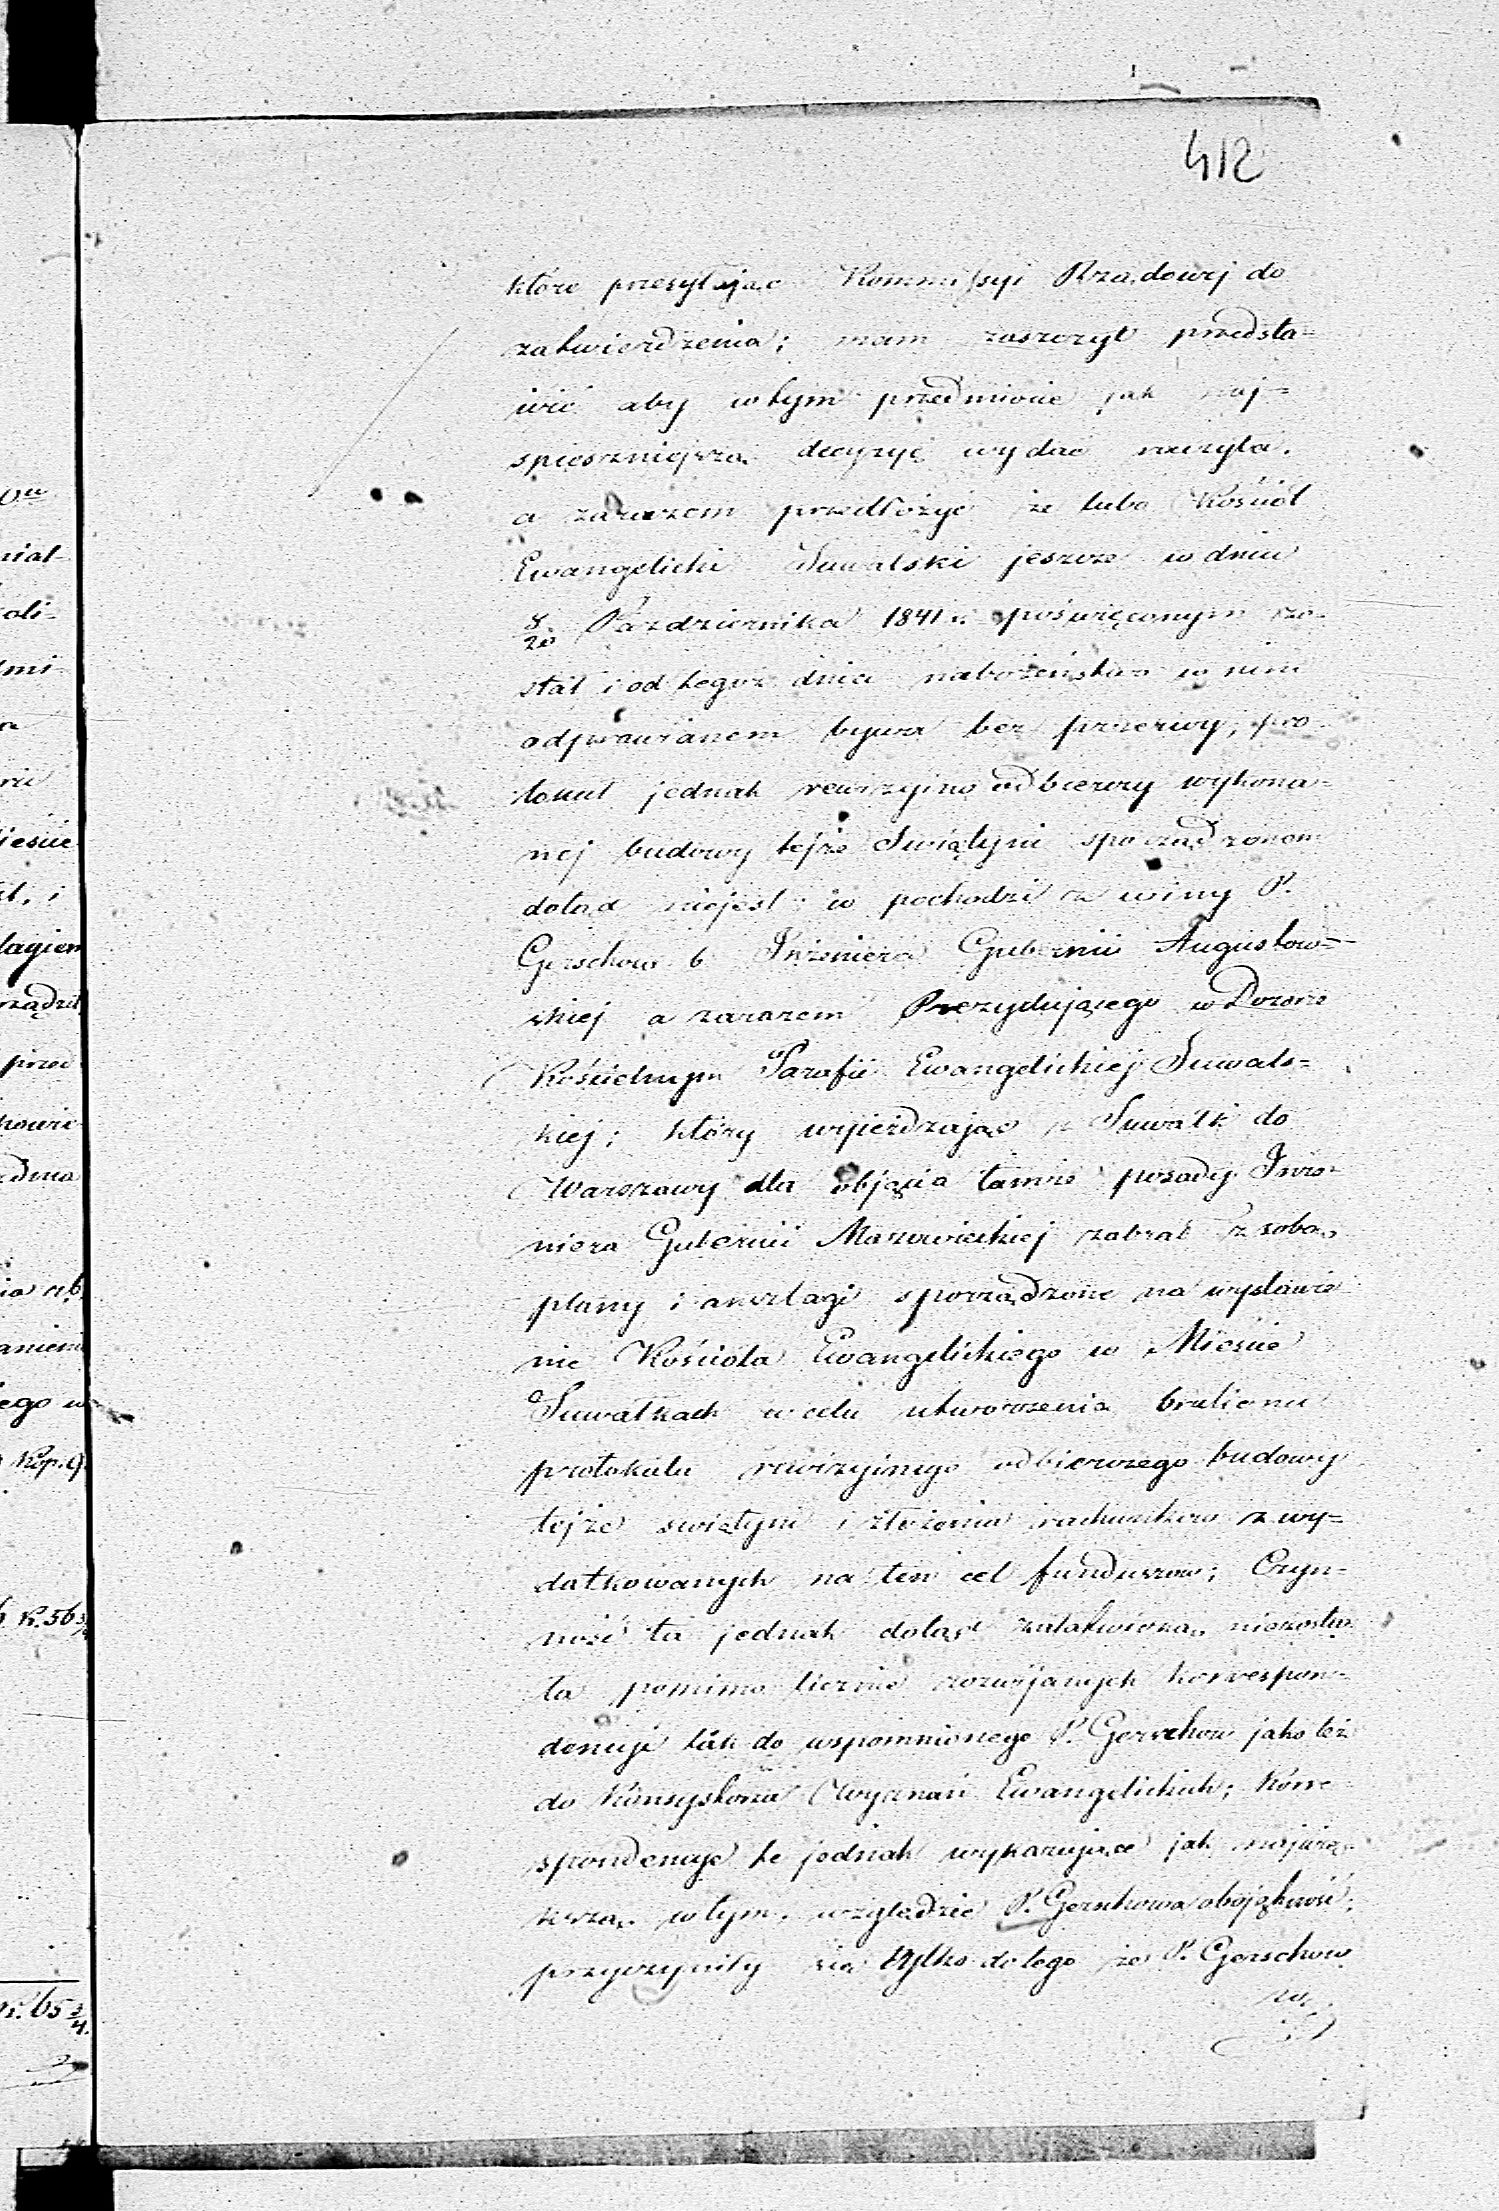 412
które przesyłając Kommissyi Rządowej do
zatwierdzenia; mam zaszczyt przedsta-
wić aby w tym przedmiocie jak naj-
spieszniejszą decyzyę wydać raczyła.
a zarazem przedłożyć że lubo Kościół
Ewangelicki Suwalski jeszcze w dniu
8/20 Października 1841 r. poświęconym zo-
stał i od tegoż dnia nabożeństwo w nim
odprawianem bywa bez przerwy, pro-
tokuł jednak rewizyjno odbiorczy wykona-
nej budowy tejże Swiątyni sporządzonem
dotąd niejest; co pochodzi z winy P.
Gerschow b. Inżeniera Gubernii Augustow-
skiej a zarazem Prezydującego w Dozorze
Kościelnym Parafii Ewangelickiej Suwals-
kiej; który wyjeżdzając z Suwałk do
Warszawy dla objęcia tamże posady Inże-
niera Gubernii Mazowieckiej zabrał z sobą
plany i anszlagi sporządzone na wystawie-
nie Kościoła Ewangelickiego w Mieście
Suwałkach w celu utworzenia brulionu
protokułu rewizyjnego odbiorczego budowy
tejże swiątyni i złożenia rachunków z wy-
datkowanych na ten cel funduszow; Czyn-
ność ta jednak dotąd załatwioną niezosta-
ła pomimo licznie rozwijanych korrespon-
dencyi tak do wspomnionego P. Gerschow jako też
do Konsystorza Wyznań Ewangelickich; Korre-
spondencye te jednak wykazujące jak najwię-
kszą w tym względzie P. Gerschowa obojętność,
przyczyniły się tylko do tego że P. Gerschow